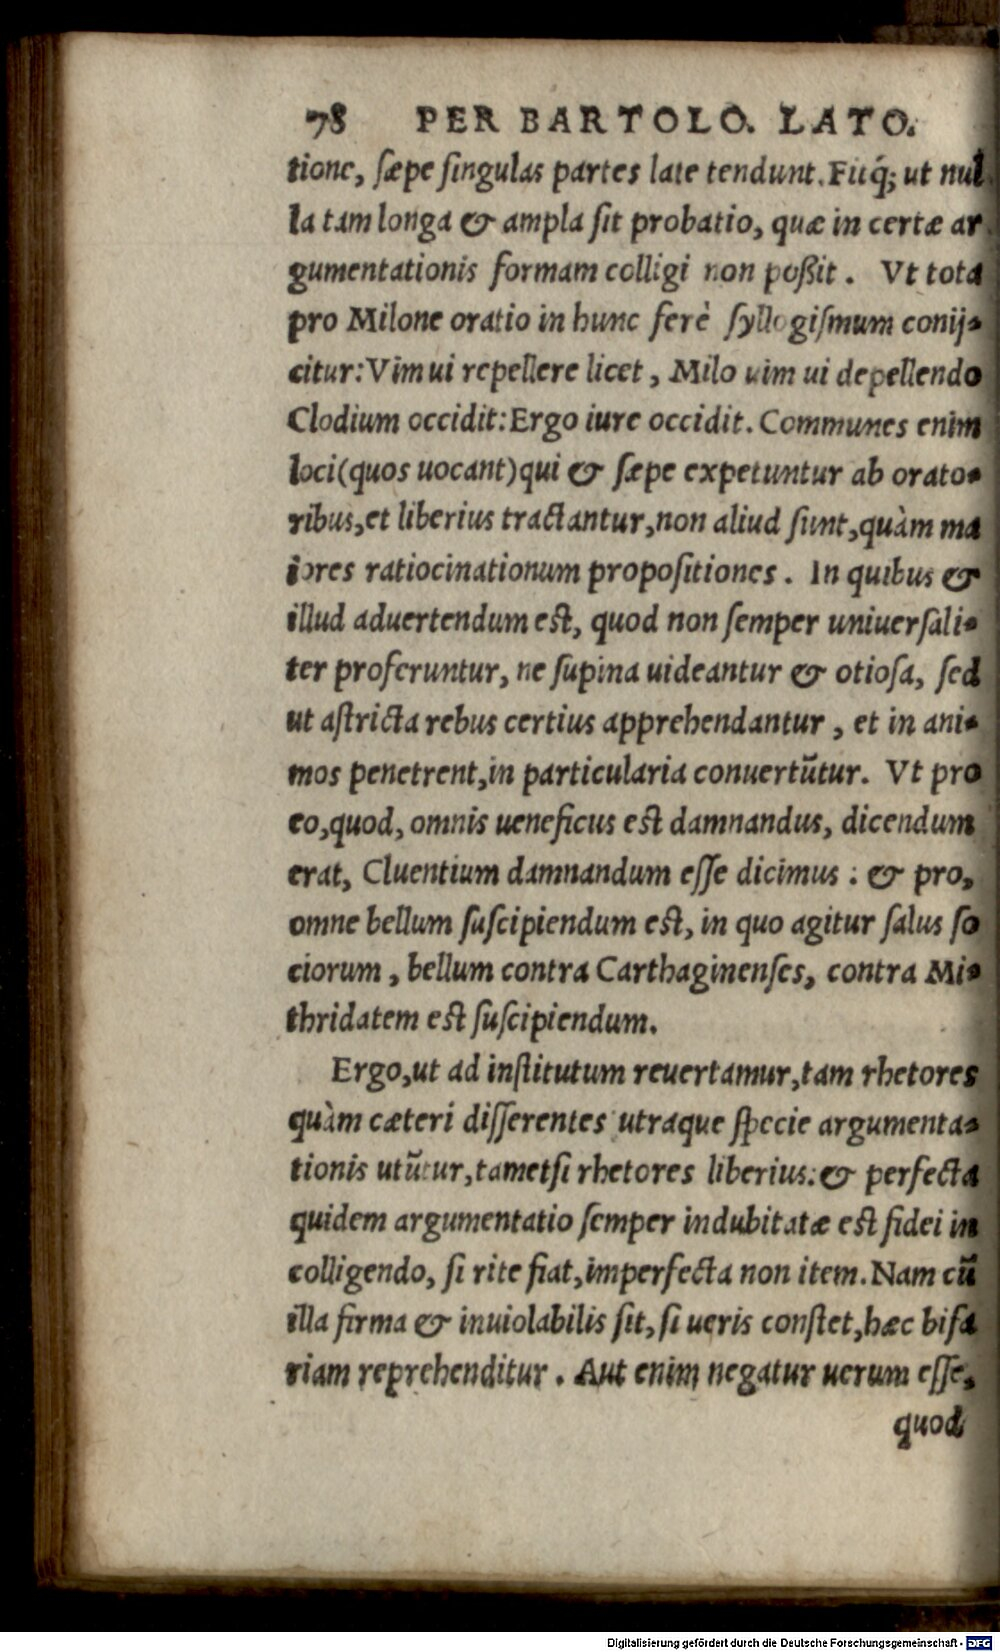 78 PER BARTOLO. LATO.
tione, sæpe singulas partes late tendunt. Fitq́; ut nul
la tam longa & ampla sit probatio, quæ in certæ ar
gumentationis formam colligi non poßit. Vt tota
pro Milone oratio in hunc ferè syllogismum conij-
citur: Vim ui repellere licet, Milo uim ui depellendo
Clodium occidit: Ergo iure occidit. Communes enim
loci (quos uocant) qui & sæpe expetuntur ab orato-
ribus, et liberius tractantur, non aliud sunt, quàm ma
iores ratiocinationum propositiones. In quibus &
illud aduertendum est, quod non semper uniuersali-
ter proferuntur, ne supina uideantur & otiosa, sed
ut astricta rebus certius apprehendantur, et in ani-
mos penetrent, in particularia conuertũtur. Vt pro
eo, quod, omnis ueneficus est damnandus, dicendum
erat, Cluentium damnandum esse dicimus: & pro,
omne bellum suscipiendum est, in quo agitur salus so
ciorum, bellum contra Carthaginenses, contra Mi-
thridatem est suscipiendum.
Ergo, ut ad institutum reuertamur, tam rhetores
quàm cæteri disserentes utraque specie argumenta-
tionis utũtur, tametsi rhetores liberius: & perfecta
quidem argumentatio semper indubitatæ est fidei in
colligendo, si rite fiat, imperfecta non item. Nam cũ
illa firma & inuiolabilis sit, si ueris constet, hæc bifa
riam reprehenditur. Aut enim negatur uerum esse,
quod
Digitalisierung gefördert durch die Deutsche Forschungsgemeinschaft - DFG